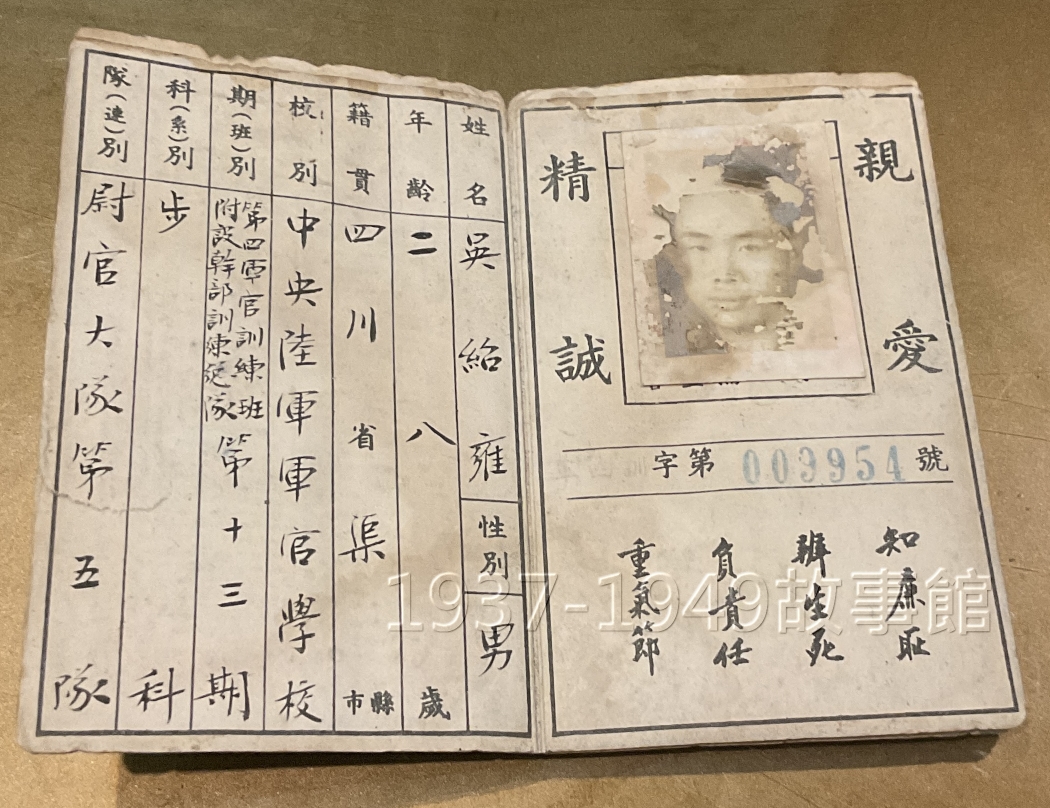 親愛
精誠
字第 003954 號
知廉恥
辨生死
負責任
重氣節
姓名 吳紹雍 性別 男
年齡 二八歲
籍貫 四川省渠縣市
校別 中央陸軍軍官學校
期(班)別 第四軍官訓練班附設幹部訓練總隊第十三期
科(系)別 步科
隊(連)別 尉官大隊第五隊
1937-1949故事館